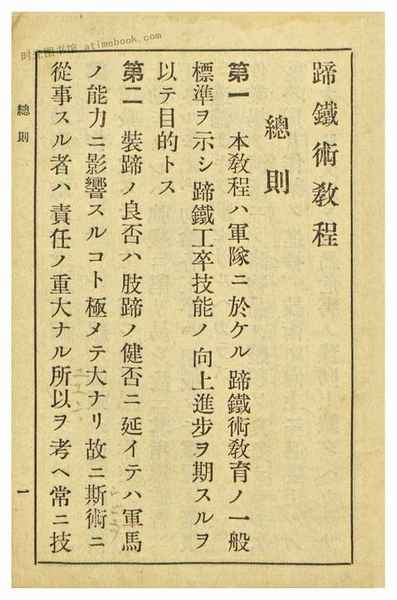 时光图书馆 atimebook.com
蹄鐵術敎程
總則
第一 本敎程ハ軍隊ニ於ケル蹄鐵術敎育ノ一般
標準ヲ示シ蹄鐵工卒技能ノ向上進步ヲ期スルヲ
以テ目的トス
第二 裝蹄ノ良否ハ肢蹄ノ健否ニ延イテハ軍馬
ノ能力ニ影響スルコト極メテ大ナリ故ニ斯術ニ
從事スル者ハ責任ノ重大ナル所以ヲ考ヘ常ニ技
總則
一